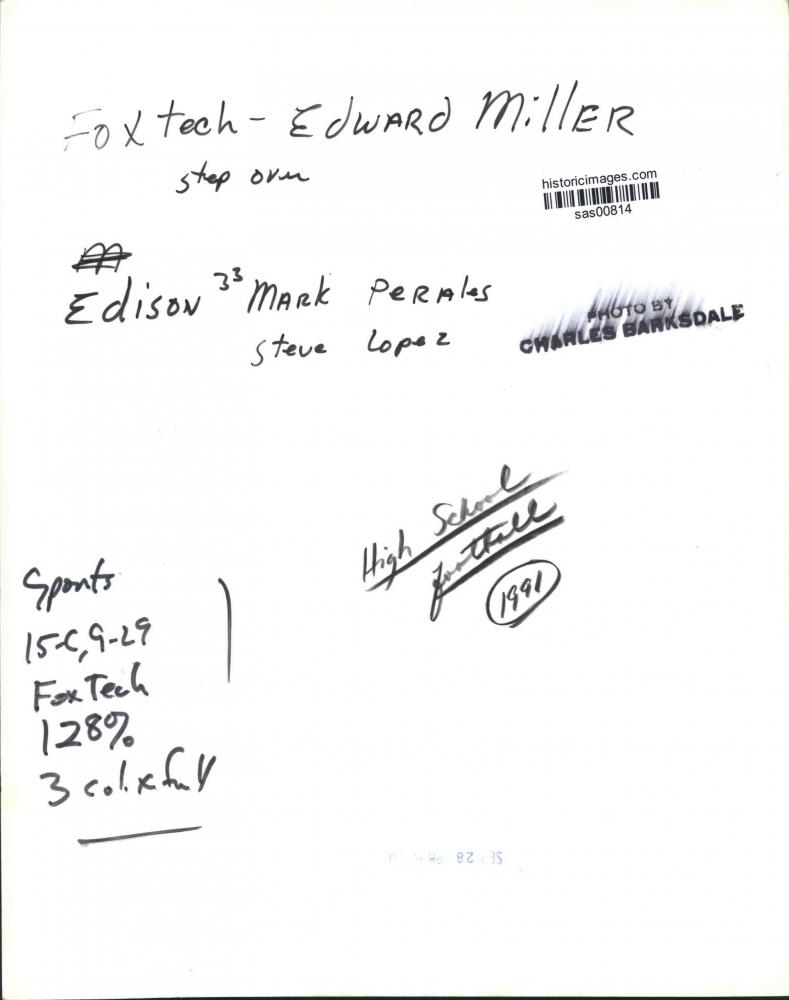 Fox tech - Edward Miller
step over
historicimages.com
sas00814
Edison 33 Mark Perales
Steve Lopez
PHOTO BY
CHARLES BARKSDALE
High School
football
1991
Sports
15-C, 9-29
Fox Tech
128%
3 col. x full
28